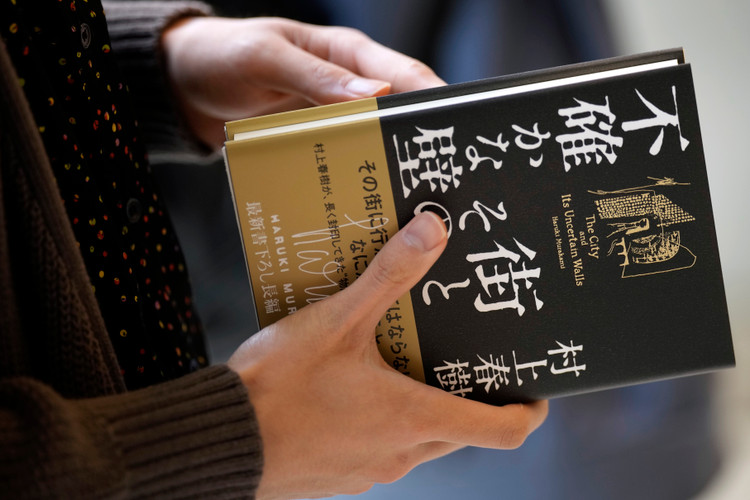 街と
その
不確かな壁
村上春樹
The City
and
Its Uncertain Walls
Haruki Murakami
その街に行
なに
はならな
村上春樹が、長く封印してきた"物
HARUKI MUR
最新書下ろし長編